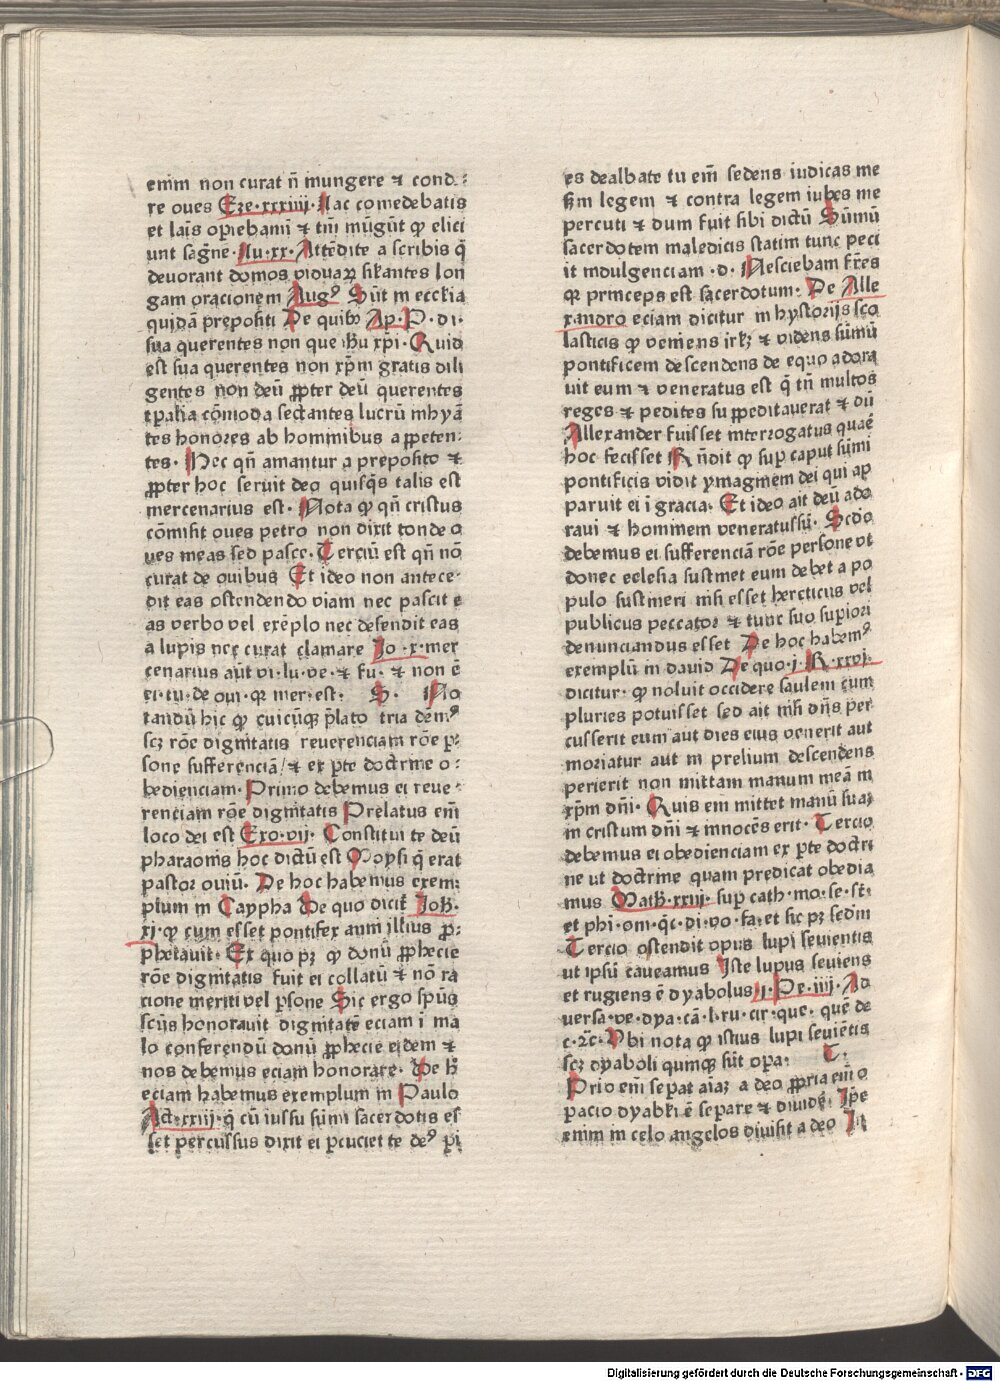 enim non curat nͥ mungere ⁊ conde⸗
re oues Eze·xxxiiij· Lac comedebatis
et lanis operiebamī ⁊ tm̄ mūgūt ꝙ elici
unt sagnē· Lu·xx· Attēdite a scribis q̄
deuorant domos viduaꝝ sil̄antes lon
gam oracionem Augꝰ Sūt in ecclīa
quidā prepositi De quibꝰ Ap· P· di·
sua querentes non que ih̄u xp̄i· Quid
est sua querentes non xp̄m gratis dili
gentes non deū ꝓpter deū querentes
tꝑalia cōmoda sectantes lucrū inhyā
tes honores ab hominibus appeten⸗
tes· Nec qn̄ amantur a preposito ⁊
ꝓpter hoc seruit deo quisq̄s talis est
mercenarius est· Nota ꝙ qn̄ cristus
cōmisit oues petro non dixit tonde o
ues meas sed pasce· Terciū est qn̄ nō
curat de ouibus Et ideo non antece⸗
dit eas ostendendo viam nec pascit e
as verbo vel exēplo nec defendit eas
a lupis nec curat clamare Jo·x·mer
cenarius aūt vi·lu·ve·⁊ fu·⁊ non ē
ei·tu·de oui·qꝛ mer·est· S· No
tandū hic ꝙ cuicūqꝫ p̄lato tria dēmꝰ
scꝫ rōe dignitatis reuerenciam rōe ꝑ⸗
sone sufferenciā/⁊ ex ꝑte doctrine o⸗
bedienciam· Primo debemus ei reue⸗
renciam rōe dignitatis Prelatus em̄
loco dei est Exo·vij· Constitui te deū
pharaonis hoc dictū est Moysi q̄ erat
pastor ouiū· De hoc habemus exem⸗
plum in Caypha De quo dicit᷑ Joh̄·
xj·ꝙ cum esset pontifex anni illius ꝓ⸗
phetauit· Ex quo pꝫ ꝙ donū ꝓphecie
rōe dignitatis fuit ei collatū ⁊ nō ra
cione meriti vel ꝑsone Sic ergo spūs
scūs honorauit dignitatē eciam ī ma
lo conferendū donū ꝓphecie eidem ⁊
nos debemus eciam honorare· De h̄
eciam habemus exemplum in Paulo
Act·xxiij·q̄ cū iussu sūmi sacerdotis es
set percussus dixit ei ꝑcuciet te deꝰ pi
es dealbate tu em̄ sedens iudicas me
scd̄m legem ⁊ contra legem iubes me
percuti ⁊ dum fuit sibi dictū Sūmū
sacerdotem maledicis statim tunc peci
it indulgenciam ·d· Nesciebam fr̄es
qꝛ princeps est sacerdotum· De Alle
xandro eciam dicitur in hystorijs sco
lasticis ꝙ veniens irlꝫ ⁊ videns sūmū
pontificem descendens de equo adora
uit eum ⁊ veneratus est q̄ tn̄ multos
reges ⁊ pedites suppeditauerat ⁊ dū
Allexander fuisset interrogatus quare
hoc fecisset Rn̄dit ꝙ suꝑ caput sūmi
pontificis vidit ymaginem dei qui ap
paruit ei ī gracia· Et ideo ait deū ado
raui ⁊ hominem veneratꝰ sū· Scd̄o
debemus ei sufferenciā rōe persone vt
donec ecclesia sustinet eum debet a po
pulo sustineri nisi esset hereticus vel
publicus peccator ⁊ tunc suo suꝑiori
denunciandus esset De hoc habemꝰ
exemplū in dauid De quo·j·R·xxvj·
dicitur· ꝙ noluit occidere saulem cum
pluries potuisset sed ait nisi dn̄s per
cusserit eum aut dies eius venerit aut
moriatur aut in prelium descendens
perierit non mittam manum meā in
xp̄m dn̄i· Quis em mittet manū suaꝫ
in cristum dn̄i ⁊ innocēs erit· Tercio
debemus ei obedienciam ex ꝑte doctri
ne ut doctrine quam predicat obedia
mus Math·xxiij· suꝑ cath·mo·se·st̄·
et phi·om·q̄c·di·vo·fa·et sic pꝫ scd̄m
Tercio ostendit opus lupi seuientis
ut ipsū caueamus Iste lupus seuiens
et rugiens ē dyabolus·j·Pe·iiij· Ad
versa·ve·dya·cā·l·ru·cir·que· quē de
c·⁊c· Vbi nota ꝙ istius lupi seuiētis
scꝫ dyaboli quinqꝫ sūt opa· T·
Prio em̄ seꝑat aīaꝫ a deo ꝓpria em̄ o
pacio dyabli ē seꝑare ⁊ diuidē· Ipe
enim in celo angelos diuisit a deo In
Digitalisierung gefördert durch die Deutsche Forschungsgemeinschaft - DFG